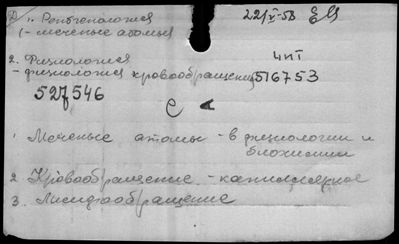 " Рентгенология 22/V-58
(- меченые атомы
2. Физиология ЧИТ
- физиология кровообращения 516753
527546
С
1 Меченые атомы - в физиологии и
биохимии
2 Кровообращение - капиллярное
3. Лимфообращение